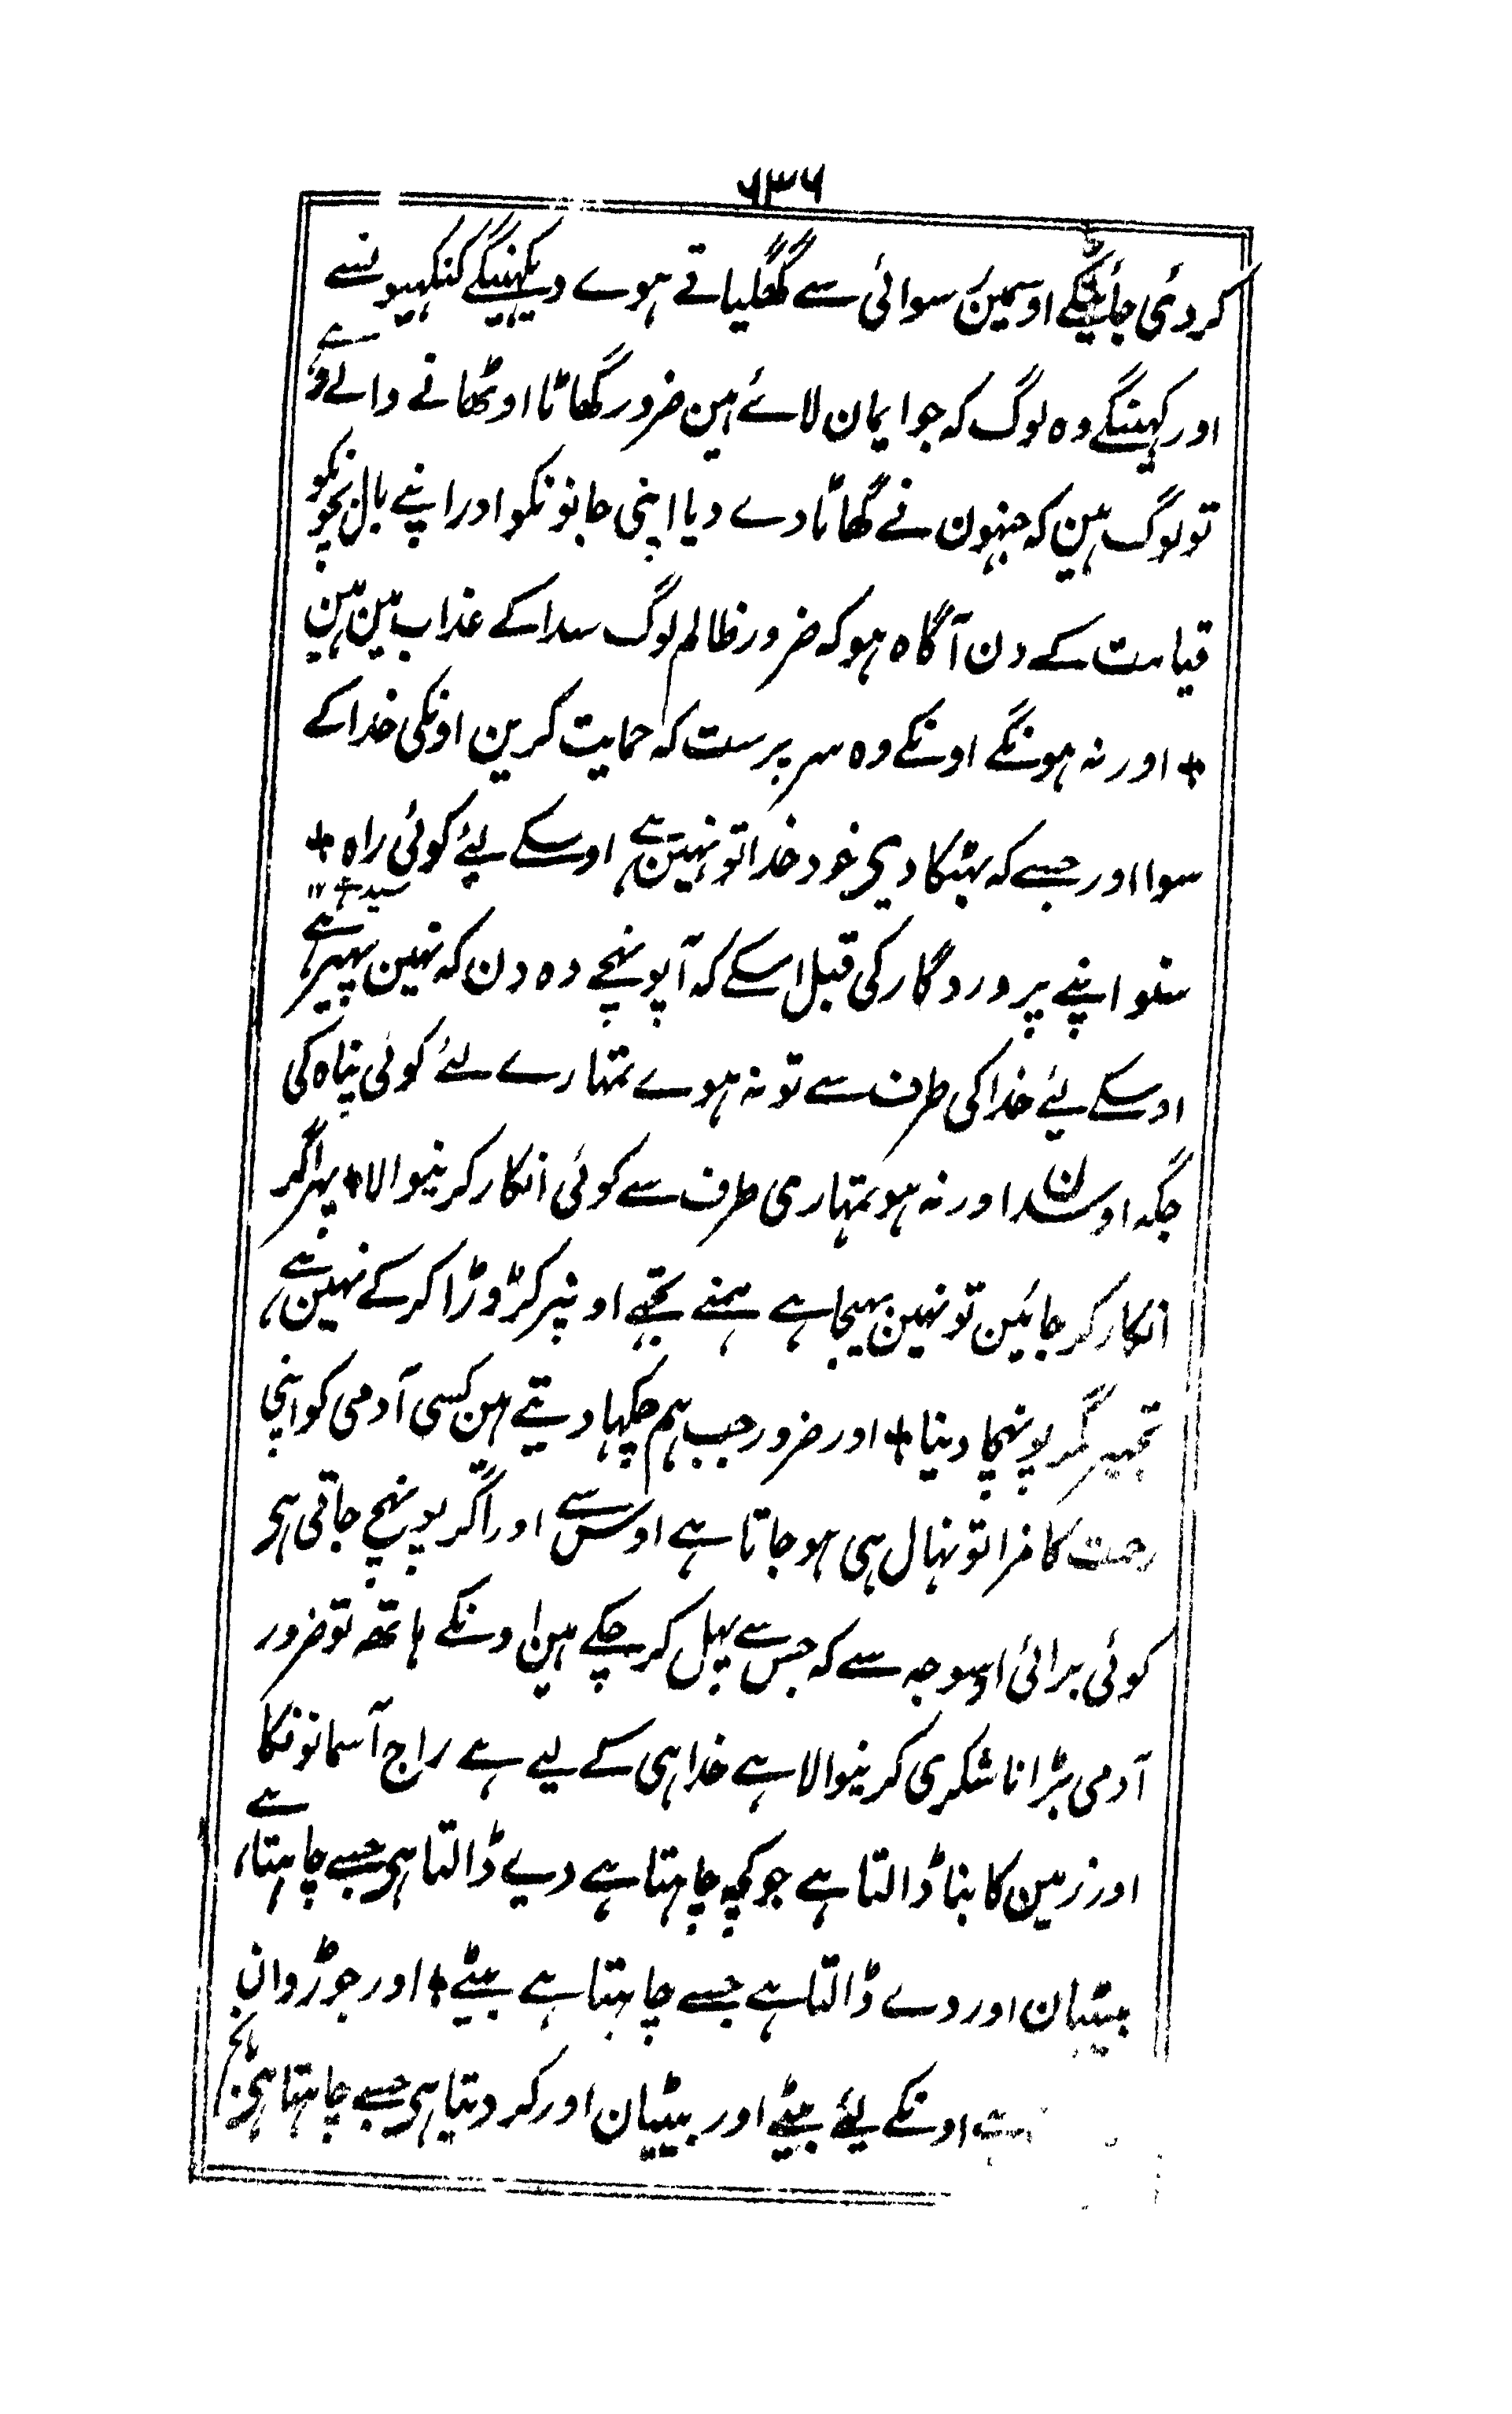 ۶۳۶
کر دئی جائینگے اوسمین رسوائی سے گھگیاتے ہوے دیکہینگے کنکہیونسے
اور کہینگے وہ لوگ کہ جو ایمان لائے ہین ضرور گھاٹا اوٹھانے والے وے
تو لوگ ہین کہ جنہون نے گھاٹا دے دیا اپنی جانونکو اور اپنے بال بچونکو
قیامت کے دن آگاہ ہو کہ ضرور ظالم لوگ سدا کے عذاب مین ہین
+ اور نہ ہونگے اونکے وہ سر پرست کہ حمایت کرین اونکی خدا کے
سوا اور جسے کہ بہٹکا دے خود خدا تو نہین ہے اوسکے لیے کوئی راہ +
سنو اپنے پروردگار کی قبل اسکے کہ آپونہچے وہ دن کہ نہین پہیر ہے
اوسکے لیے خدا کی طرف سے تو نہ ہوے تمہارے لئے کوئی پناہ کی
جگہ اوسدن اور نہ ہو تمہاری طرف سے کوئی انکار کرنیوالا + پہر اگر
انکار کر جائین تو نہین بہیجا ہے ہمنے تجھے اونپر کڑوڑا کرکے نہین ہے
تجہپر مگر پونہچا دینا + اور ضرور جب ہم چکہا دیتے ہین کسی آدمی کو اپنی
رحمت کا مزا تو نہال ہی ہو جاتا ہے اوس سے اور اگر پونہچ جاتی ہی
کوئی برائی اوسوجہ سے کہ جس سے پہل کر چکے ہین اونکے ہاتھ تو ضرور
آدمی بڑا ناشکری کرنیوالا ہے خدا ہی کے لیے ہے راج آسمانونکا
اور زمین کا بنا ڈالتا ہے جو کچہ چاہتا ہے دیے ڈالتا ہی جسے چاہتا ہے
بیٹیان اور دے ڈالتا ہے جسے چاہتا ہے بیٹے + اور جوڑوان
اونکے لیے بیٹے اور بیٹیان اور کر دیتا ہی جسے چاہتا ہی بانجھ